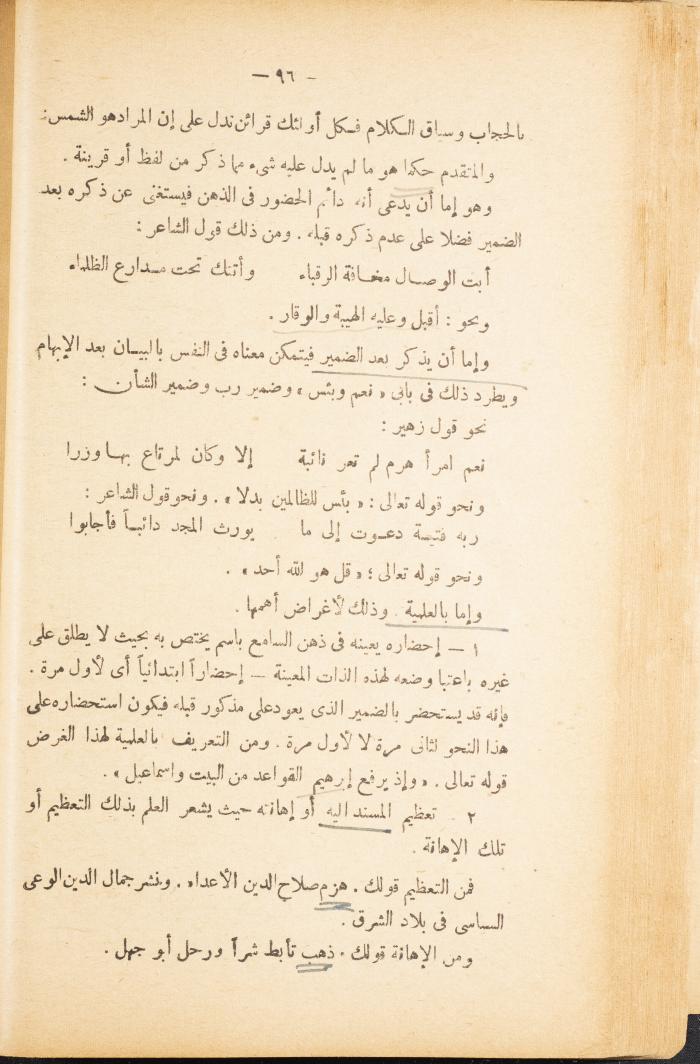 - ٩٦ -
بالحجاب وسياق الكلام فكل أولئك قرائن تدل على إن المراد هو الشمس:
والمتقدم حكما هو ما لم يدل عليه شىء مما ذكر من لفظ أو قرينة .
وهو إما أن يدعى أنه دائم الحضور فى الذهن فيستغنى عن ذكره بعد
الضمير فضلا على عدم ذكره قبله . ومن ذلك قول الشاعر :
أبت الوصال مخافة الرقباء وأتتك تحت مدارع الظلماء
ونحو : أقبل وعليه الهيبة والوقار .
وإما أن يذكر بعد الضمير فيتمكن معناه فى النفس بالبيان بعد الإبهام
ويطرد ذلك فى بابى « نعم وبئس » وضمير رب وضمير الشأن :
نحو قول زهير :
نعم امرأ هرم لم تعر نائبة إلا وكان لمرتاع بها وزرا
ونحو قوله تعالى : « بئس للظالمين بدلا » . ونحو قول الشاعر :
ربه فتية دعوت إلى ما يورث المجد دائباً فأجابوا
ونحو قوله تعالى ؛ « قل هو الله أحد » .
وإما بالعلمية . وذلك لأغراض أهمها .
١ — إحضاره بعينه فى ذهن السامع باسم يختص به بحيث لا يطلق على
غيره باعتبا وضعه لهذه الذات المعينة — إحضاراً ابتدائياً أى لأول مرة .
فإنه قد يستحضر بالضمير الذى يعود على مذكور قبله فيكون استحضاره على
هذا النحو لثانى مرة لا لأول مرة . ومن التعريف بالعلمية لهذا الغرض
قوله تعالى . « وإذ يرفع إبرهيم القواعد من البيت واسماعيل » .
٢ . تعظيم المسند اليه أو إهانته حيث يشعر العلم بذلك التعظيم أو
تلك الإهانة .
فمن التعظيم قولك . هزم صلاح الدين الأعداء . وينشر جمال الدين الوعى
السياسى فى بلاد الشرق .
ومن الإهانة قولك . ذهب تأبط شراً ورحل أبو جهل .